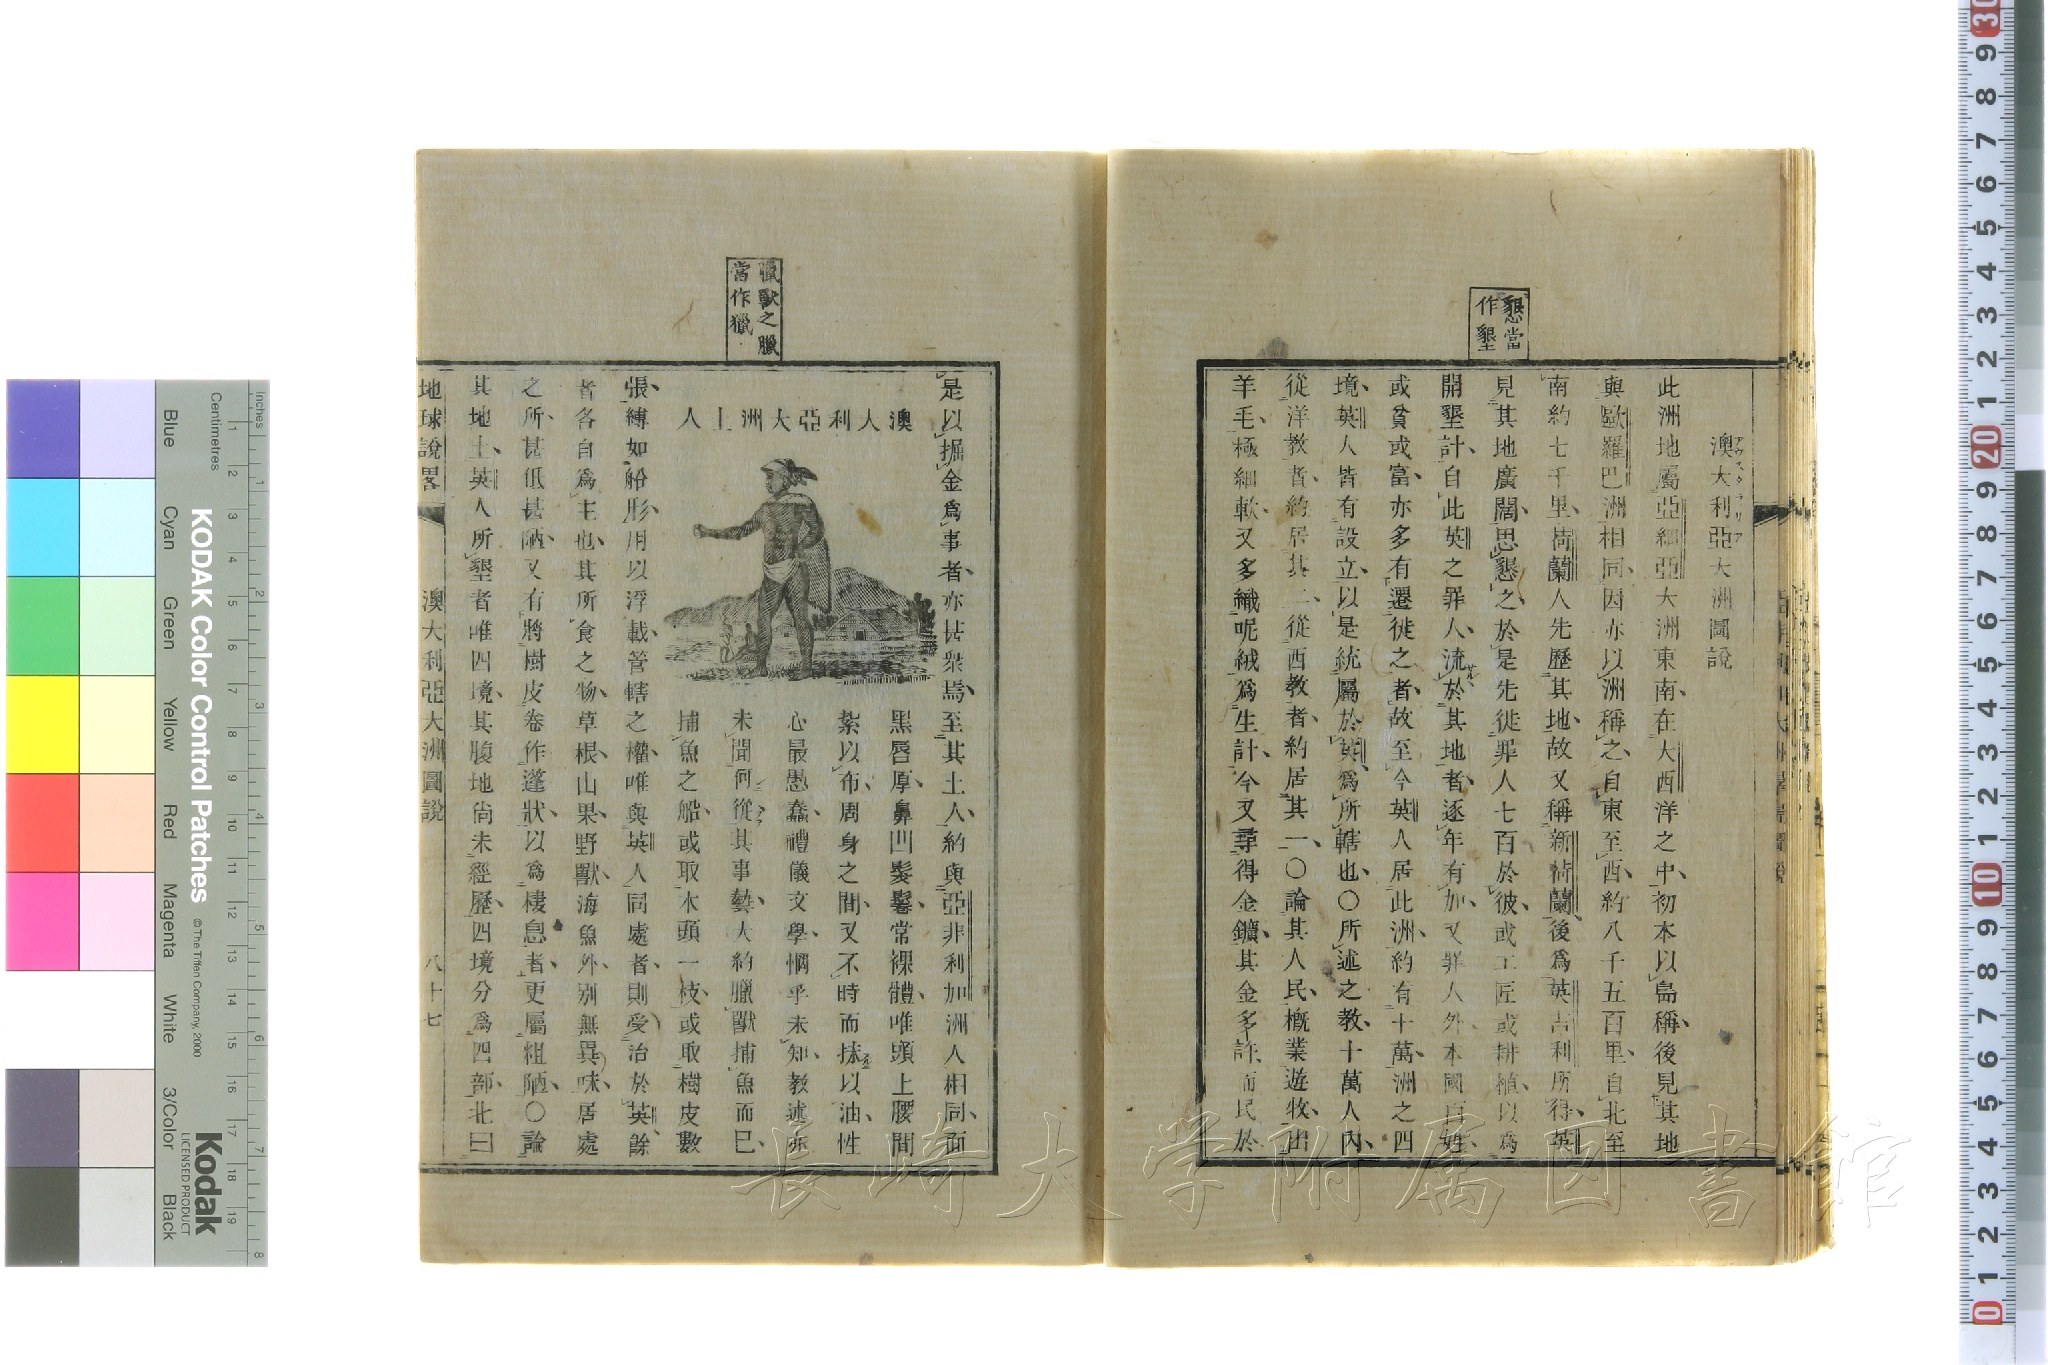 懇當
作墾
澳大利亞大洲圖說
アウスタラリア
此洲地屬亞細亞大洲東南、在大西洋之中、初本以島稱、後見其地
與歐羅巴洲相同、因亦以洲稱之、自東至西、約八千五百里、自北至
南約七千里、荷蘭人先歷其地、故又稱新荷蘭、後為英吉利所得、英
見其地廣闊、思懇之、於是先徙罪人七百於彼、或工匠或耕植、以為
開墾計、自此英之罪人、流於其地者、逐年有加、又罪人外、本國百姓
或貧或富、亦多有遷徙之者、故至今英人居此洲、約有十萬、洲之四
境、英人皆有設立、以是統屬於英、為所轄也、〇所述之教、十萬人內、
從洋教者、約居其二、從西教者、約居其一、〇論其人民、槪業遊牧、出
羊毛、極細軟、又多織呢絨為生計、今又尋得金鑛、其金多許、而民於
臘獸之臘
當作獵
是以掘金為事者、亦甚衆焉、至其土人、約與亞非利加洲人相同、面
澳大利亞大洲土人
黑唇厚、鼻凹髮鬈、常裸體、唯頭上腰間
紮以布、周身之間、又不時而抹以油、性
心最愚蠢、禮儀文學、惘乎未知、教述亦
未聞何從、其事藝、大約臘獸捕魚而已、
捕魚之船、或取木頭一枝、或取樹皮數
張、縛如船形、用以浮載、管轄之權、唯與英人同處者、則受治於英、餘
者各自為主也、其所食之物、草根、山果、野獸、海魚外、別無異味、居處
之所、甚低甚陋、又有將樹皮卷作蓬狀、以為棲息者、更屬粗陋、〇論
其地土、英人所墾者、唯四境、其腹地尙未經歷、四境分為四部、北曰
地球說畧
澳大利亞大洲圖說
八十七
長崎大学附属図書館
KODAK Color Control Patches
© The Tiffen Company, 2000
Kodak
LICENSED PRODUCT
Inches
Centimetres
Blue
Cyan
Green
Yellow
Red
Magenta
White
3/Color
Black